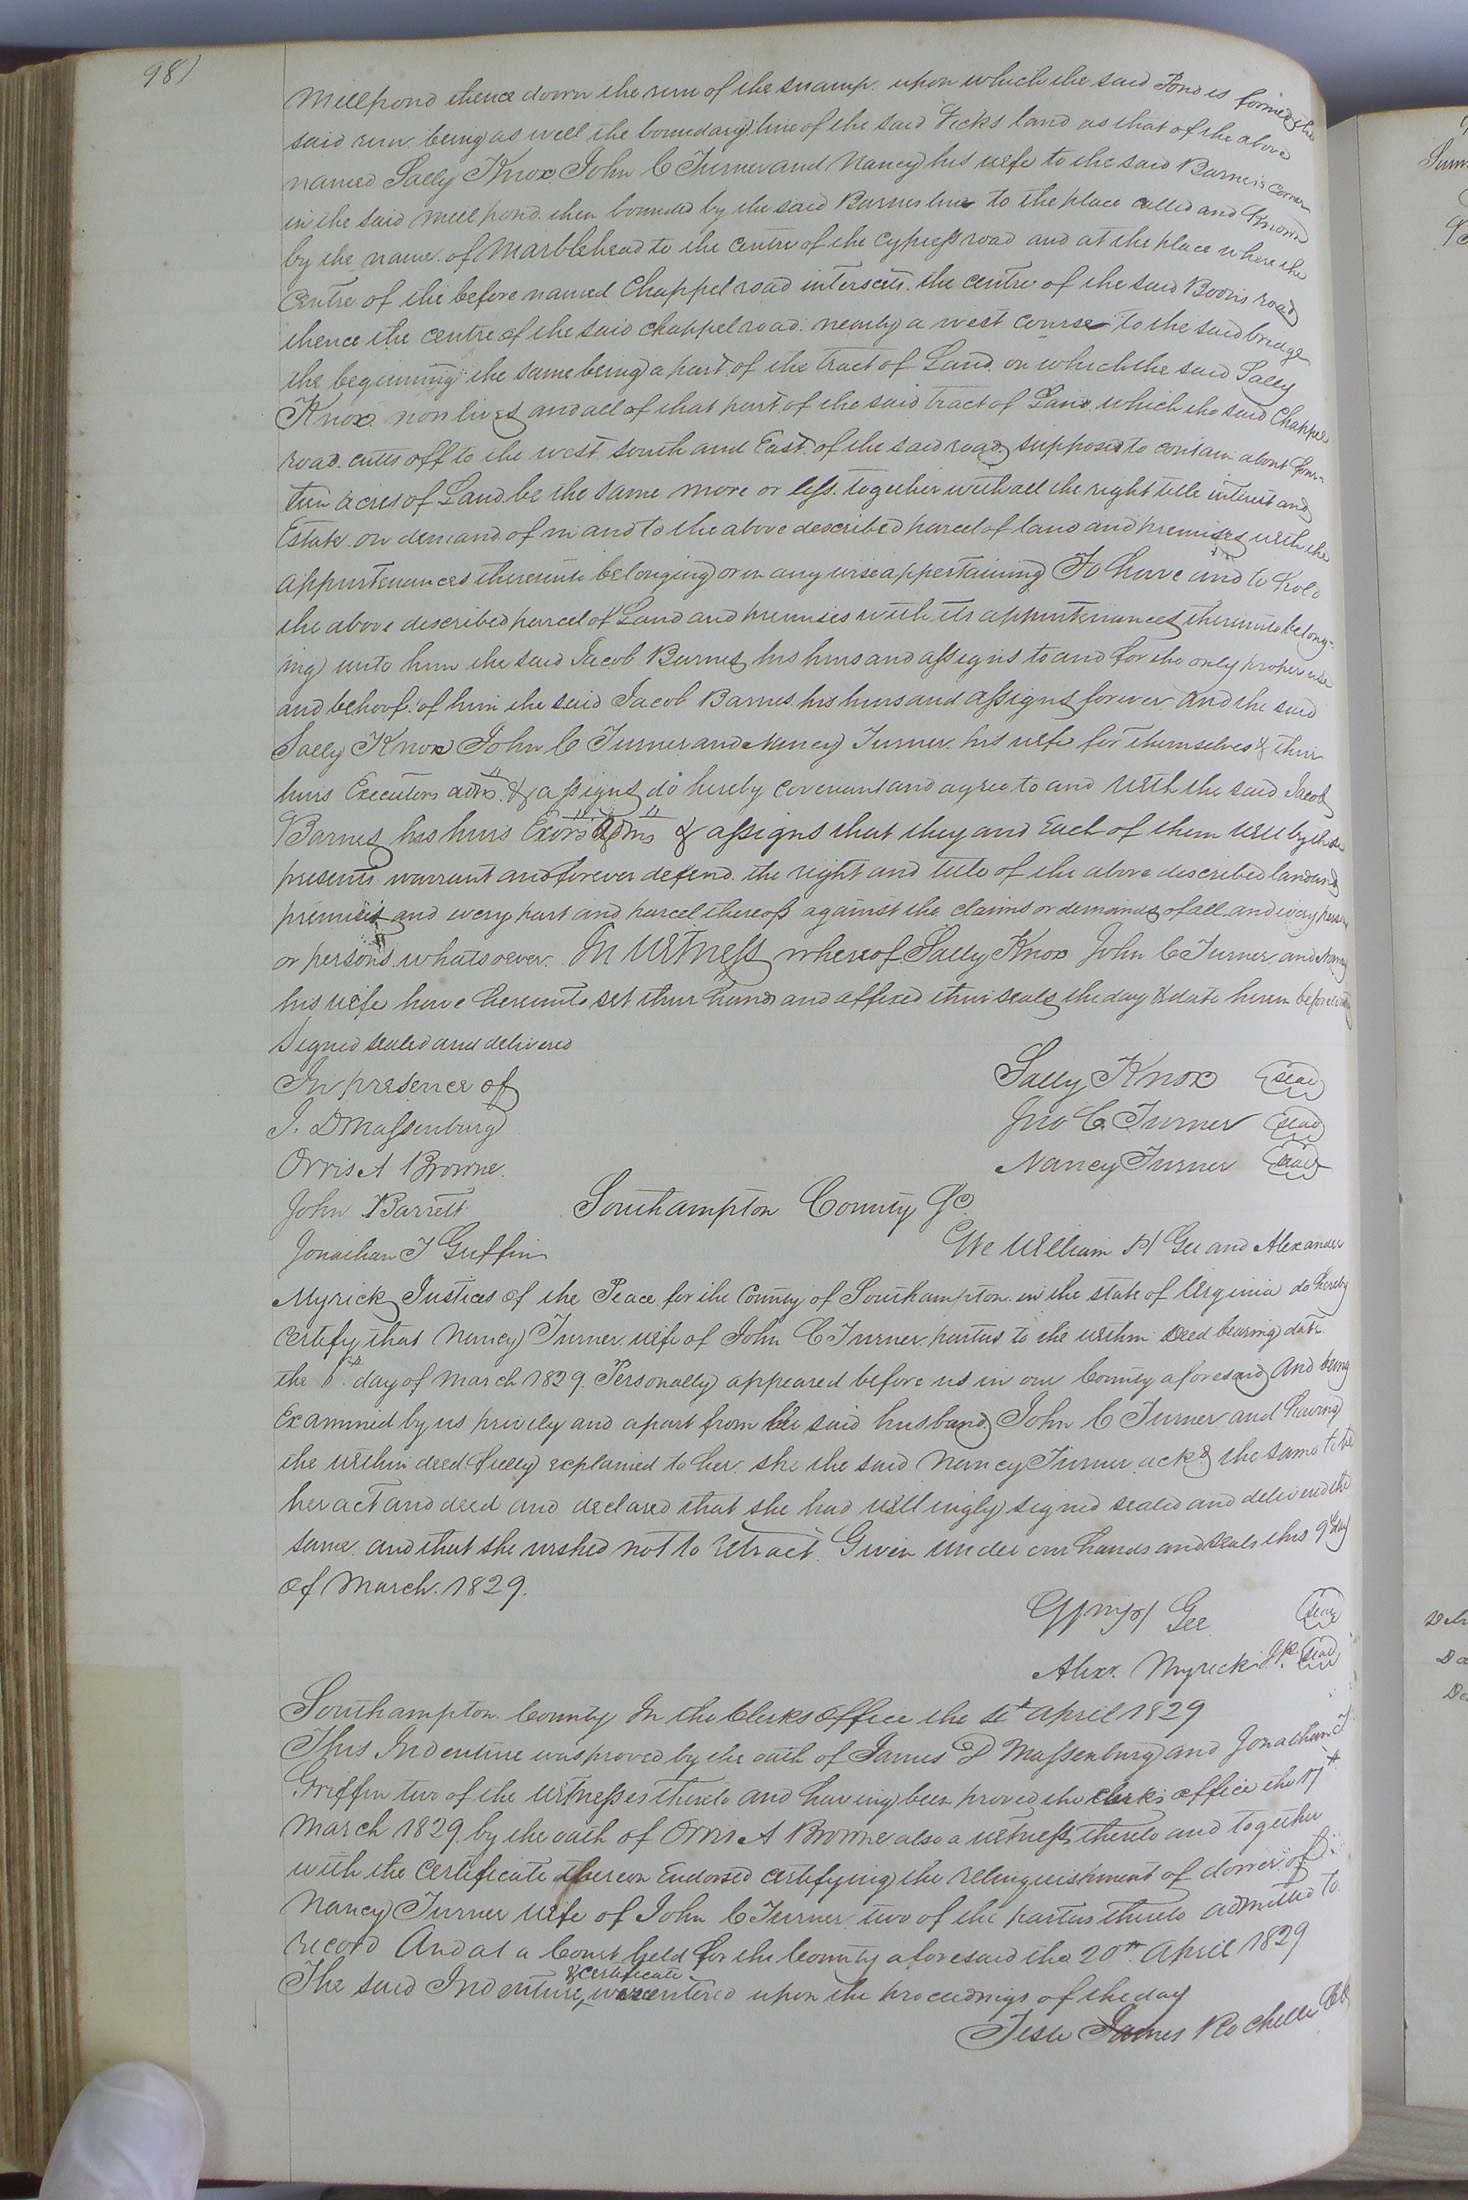 98)
Millpond thence down the run of the swamp. upon which the said Pond is formed the
said run being as well the boundary line of the said Ficks land as that of the above
named Sally Knox John C Turner and Nancy his wife to the said Barnes's corner
in the said mill pond. then bounded by the said Barnes line to the place called and Known
by the name of Marblehead to the centre of the Cypress road and at the place where the
Centre of the before named Chappel road intersects. the centre of the said Boon's road
thence the centre of the said chappel road nearly a west course to the said bridge
the beginning the same being a part of the tract of Land on which the said Sally
Knox now lives and all of that part of the said tract of Land which the said Chappel
road cutts off to the west south and East of the said road supposed to contain about
teen acres of Land be the same more or less. together with all the right title interest and
Estate on demand of in and to the above described parcel of land and premises with the
appurtenances thereunto belonging or in any wise appertaining To have and to hold
the above described parcel of Land and premises with its appurtenances thereunto belong-
ing unto him the said Jacob Barnes his heirs and assigns to and for the only proper use
and behoof of him the said Jacob Barnes his heirs and assigns forever And the said
Sally Knox John C Turner and Nancy Turner his wife for themselves & their
heirs Executors adms. & assigns do hereby covenant and agree to and with the said Jacob
Barnes his heirs Exors adms & assigns that they and Each of them will by these
presents warrant and forever defend the right and title of the above described land and
premises and every part and parcel thereof against the claims or demands of all and every person
or persons whatsoever. In Witness whereof Sally Knox John C Turner and Nancy
his wife have hereunto set their hands and affixed their seals the day & date herein before
Signed sealed and delivered
In presence of
Sally Knox seal
J. D Massenburg
Jno C. Turner seal
Orris A Browne.
Nancy Turner seal
John Barrett
Southampton County Sc
Jonathan J Griffin
We William H Gee and Alexander
Myrick Justices of the Peace for the County of Southampton in the state of Virginia do hereby
Certify that Nancy Turner wife of John C Turner parties to the within Deed bearing date
the day of March 1829. Personally appeared before us in our County aforesaid And being
Examined by us privily and apart from her said husband John C Turner and having
the within deed fully explained to her. she the said Nancy Turner ackd the same to be
her act and deed and declared that she had willingly signed sealed and delivered the
same. and that she wished not to retract. Given under our hands and seals this 9th day
of March. 1829.
Wm H Gee seal
Alexr. Myrick J.P. seal
Southampton County In the Clerks Office the April 1829
This Indenture was proved by the oath of James D Massenburg and Jonathan J
Griffin two of the witnesses thereto and having been proved the clerks office the 17th
March 1829 by the oath of Orris A Browne also a witness thereto and together
with the certificate thereon Endorsed certifying the relinquishment of dower of
Nancy Turner wife of John C Turner two of the parties thereto admitted to
record And at a Court held for the County aforesaid the 20th April 1829
The said Indenture & certificate were entered upon the proceedings of the day
Teste James Rochelle Clk